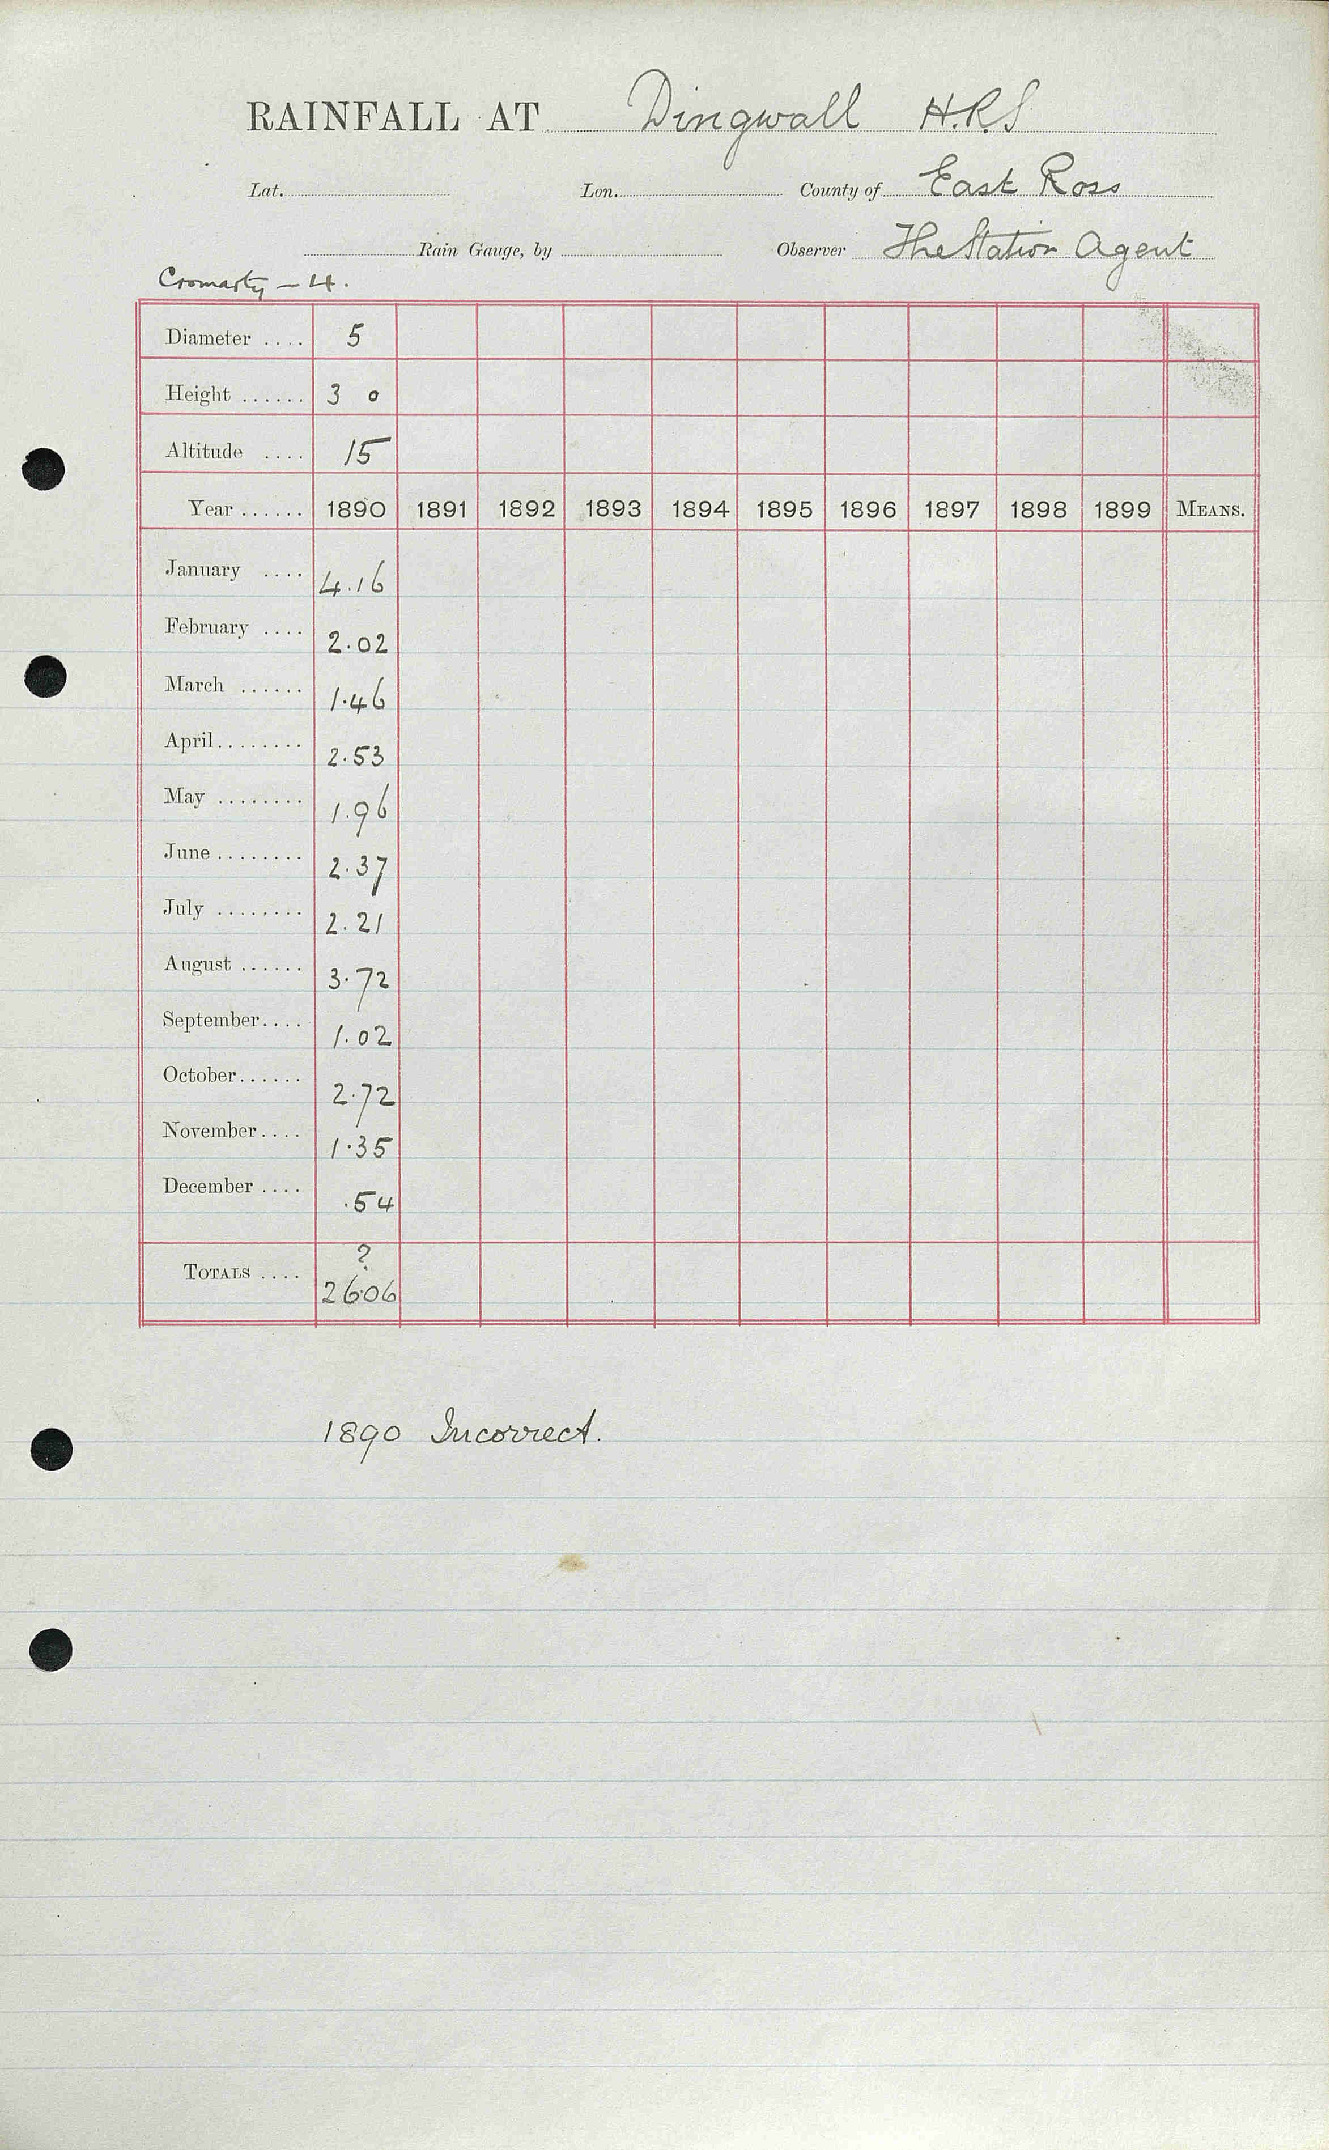 RAINFALL AT Dingwall H.R.S
Lat. Lon. County of East Ross
Rain Gauge, by Observer The Station Agent
Cromarty – 4.
Diameter .... 5
Height ...... 3 0
Altitude .... 15
Year ...... 1890 1891 1892 1893 1894 1895 1896 1897 1898 1899 MEANS.
January .... 4.16
February .... 2.02
March ...... 1.46
April........ 2.53
May ........ 1.96
June........ 2.37
July ........ 2.21
August ...... 3.72
September.... 1.02
October...... 2.72
November.... 1.35
December .... .54
?
TOTALS .... 26.06
1890 Incorrect.